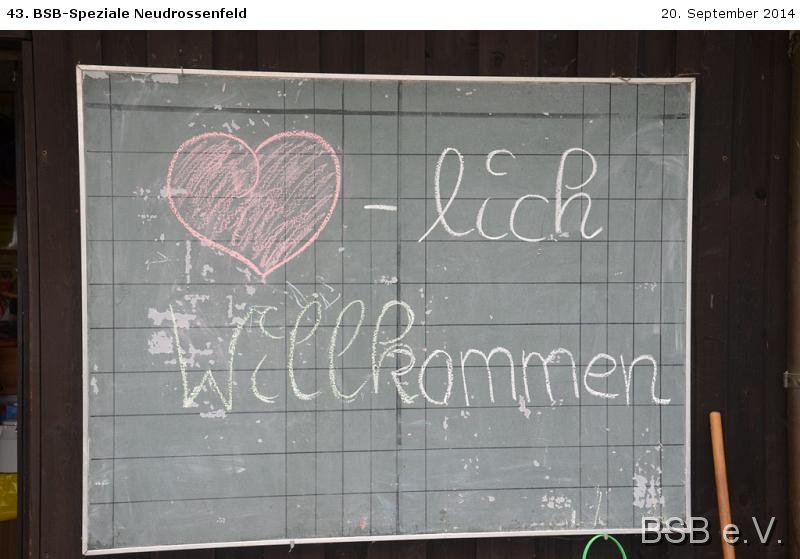 43. BSB-Speziale Neudrossenfeld 20. September 2014
- lich
Willkommen
BSB e.V.